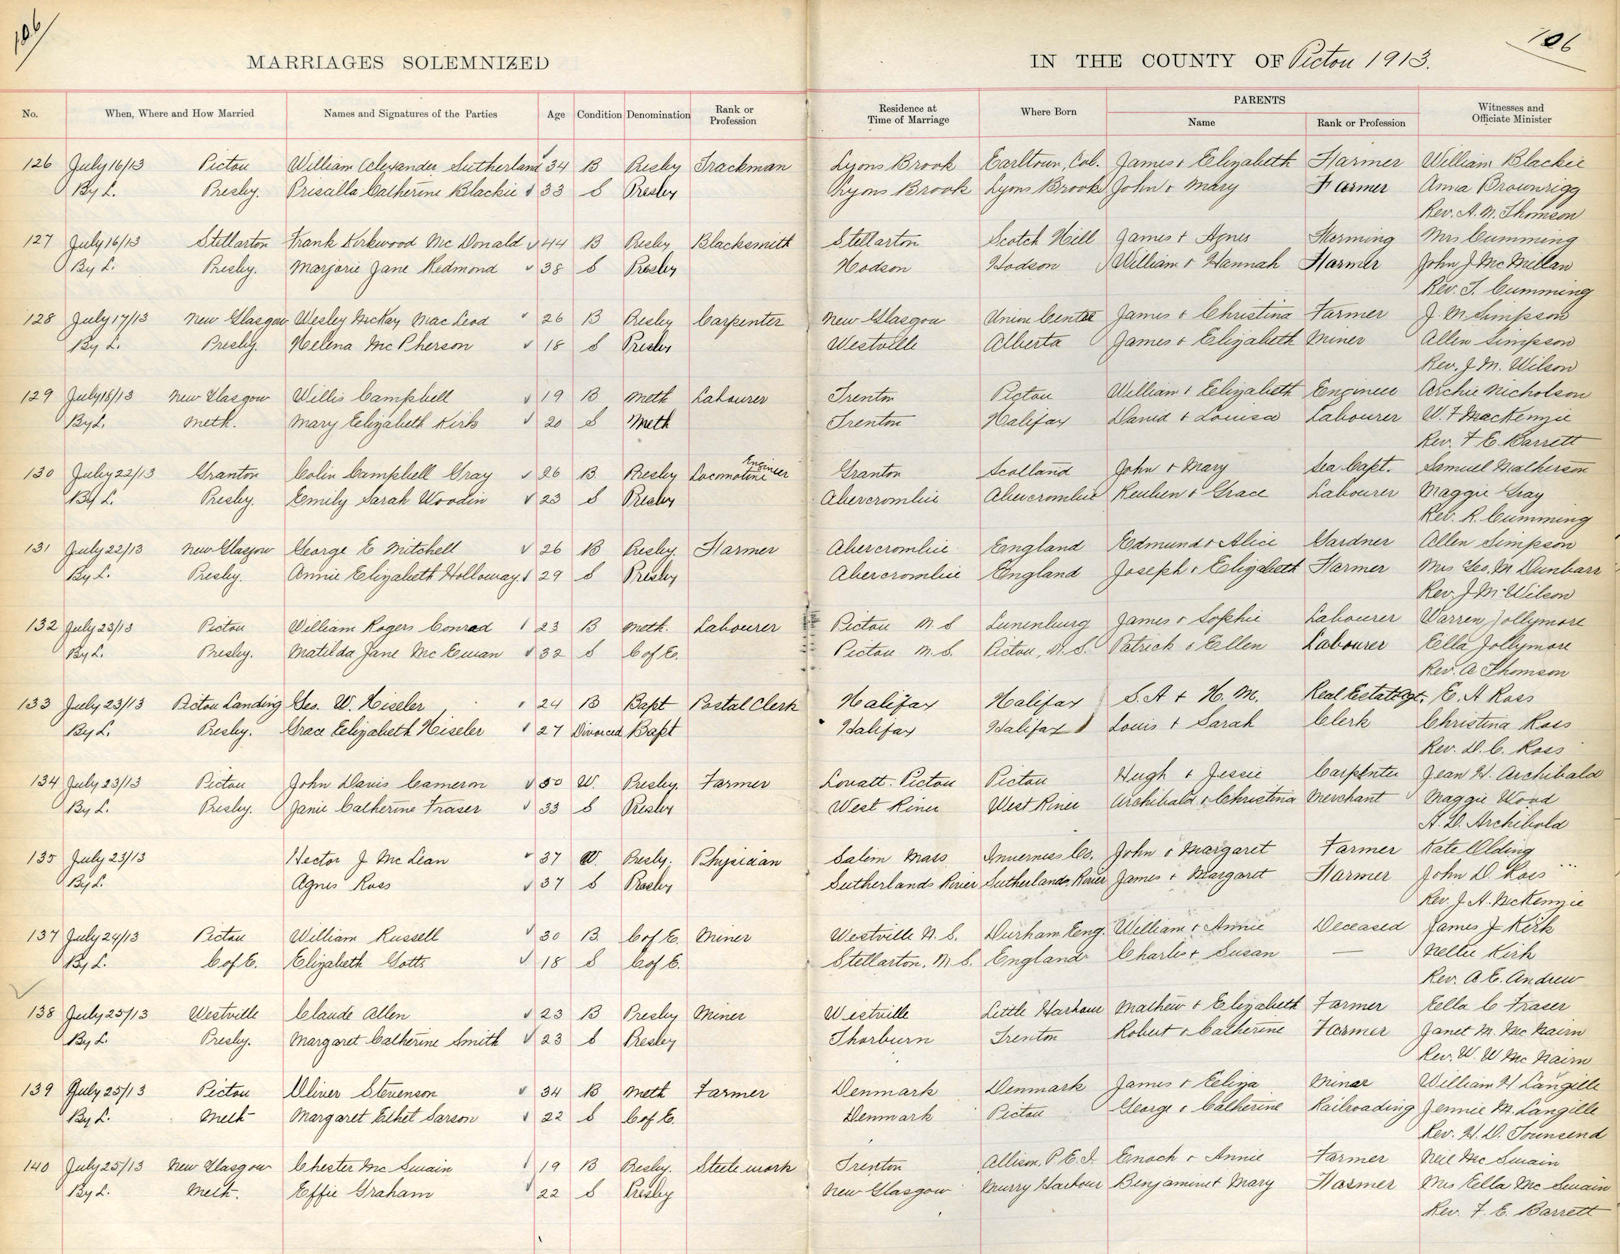 106
106
MARRIAGES SOLEMNIZED
IN THE COUNTY OF Pictou 1913.
No. When, Where and How Married Names and Signatures of the Parties Age Condition Denomination Rank or Profession Residence at Time of Marriage Where Born PARENTS Name Rank or Profession Witnesses and Officiate Minister
126 July 16/13 Pictou William Alexander Sutherland 34 B Presby Trackman Lyons Brook Earltown, Col. James & Elizabeth Farmer William Blackie
By L. Presby. Priscilla Catherine Blackie 33 S Presby Lyons Brook Lyons Brook John & Mary Farmer Anna Brownrigg
Rev. A. M. Thomson
127 July 16/13 Stellarton Frank Kirkwood McDonald 44 B Presby Blacksmith Stellarton Scotch Hill James & Agnes Farming Mrs Cumming
By L. Presby. Marjorie Jane Redmond 38 S Presby Hodson Hodson William & Hannah Farmer John J McMillan
Rev. T. Cumming
128 July 17/13 New Glasgow Wesley McKay MacLeod 26 B Presby Carpenter New Glasgow Union Centre James & Christina Farmer J. M Simpson
By L. Presby. Helena McPherson 18 S Presby Westville Alberta James & Elizabeth Miner Allen Simpson
Rev. J. M. Wilson
129 July 18/13 New Glasgow Willis Campbell 19 B Meth Labourer Trenton Pictou William & Elizabeth Engineer Archie Nicholson
By L. Meth. Mary Elizabeth Kirk 20 S Meth Trenton Halifax David & Louisa Labourer W. F MacKenzie
Rev. F. E. Barrett
130 July 22/13 Granton Colin Campbell Gray 26 B. Presby Locomotive Engineer Granton Scotland John & Mary Sea Capt. Samuel Matherson
By L. Presby. Emily Sarah Woodin 23 S Presby Abercrombie Abercrombie Reuben & Grace Labourer Maggie Gray
Rev. R. Cumming
131 July 22/13 New Glasgow George E Mitchell 26 B Presby. Farmer Abercrombie England Edmund & Alice Gardner Allen Simpson
By L. Presby. Annie Elizabeth Holloway 29 S Presby Abercrombie England Joseph & Elizabeth Farmer Mrs Geo. M Dunbar
Rev. J. M. Wilson
132 July 23/13 Pictou William Rogers Conrad 23 B Meth. Labourer Pictou N.S Lunenburg James & Sophie Labourer Warren Jollymore
By L. Presby. Matilda Jane McEwan 32 S C of E. Pictou N.S. Pictou, N.S. Patrick & Ellen Labourer Ella Jollymore
Rev. A Thomson
133 July 23/13 Pictou Landing Geo. W. Hiseler 24 B Bapt Postal Clerk Halifax Halifax S. A & H. M. Real Estate Agt. E. A Ross
By L. Presby. Grace Elizabeth Hiseler 27 Divorced Bapt Halifax Halifax Louis & Sarah Clerk Christina Ross
Rev. D. C. Ross
134 July 23/13 Pictou John Davis Cameron 50 W. Presby. Farmer Lovatt. Pictou Pictou Hugh & Jessie Carpenter Jean H. Archibald
By L. Presby. Janie Catherine Fraser 33 S Presby West River West River Archibald & Christina Merchant Maggie Wood
A. D. Archibald
135 July 23/13 Hector J McLean 37 W. Presby. Physician Salem Mass Inverness Co. John & Margaret Farmer Kate Olding
By L. Agnes Ross 37 S Presby Sutherlands River Sutherlands River James & Margaret Farmer John D. Ross
Rev. J. A. McKenzie
137 July 24/13 Pictou William Russell 30 B. C of E. Miner Westville N.S. Durham Eng. William & Annie Deceased James J Kirk
By L. C of E. Elizabeth Gotts 18 S C of E. Stellarton, N.S. England Charles & Susan — Nellie Kirk
Rev. A. E. Andrew
138 July 25/13 Westville Claude Allen 23 B Presby Miner Westville Little Harbour Mathew & Elizabeth Farmer Ella C Fraser
By L. Presby. Margaret Catherine Smith 23 S Presby Thorburn Trenton Robert & Catherine Farmer Janet M. McNairn
Rev. W. W McNairn
139 July 25/13 Pictou Oliver Stevenson 34 B Meth Farmer Denmark Denmark James & Eeliza Miner William H Langille
By L. Meth Margaret Ethel Sarson 22 S C of E. Denmark Pictou George & Catherine Railroading Jennie M. Langille
Rev. H. D. Townsend
140 July 25/13 New Glasgow Chester McSwain 19 B Presby. Steel work Trenton Allison P.E.I. Enoch & Annie Farmer Neil McSwain
By L. Meth. Effie Graham 22 S Presby New Glasgow Murry Harbour Benjamin & Mary Farmer Mrs Ella McSwain
Rev. F. E. Barrett